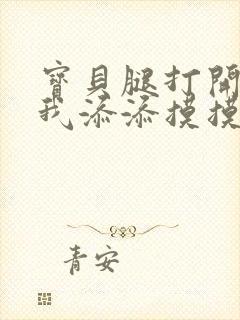 寶貝腿打開
我添添摸摸
青安